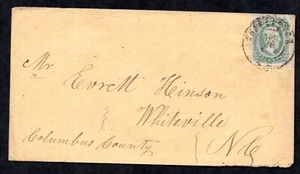 Mr.
Everett Hinson
Whiteville
Columbus County N.C